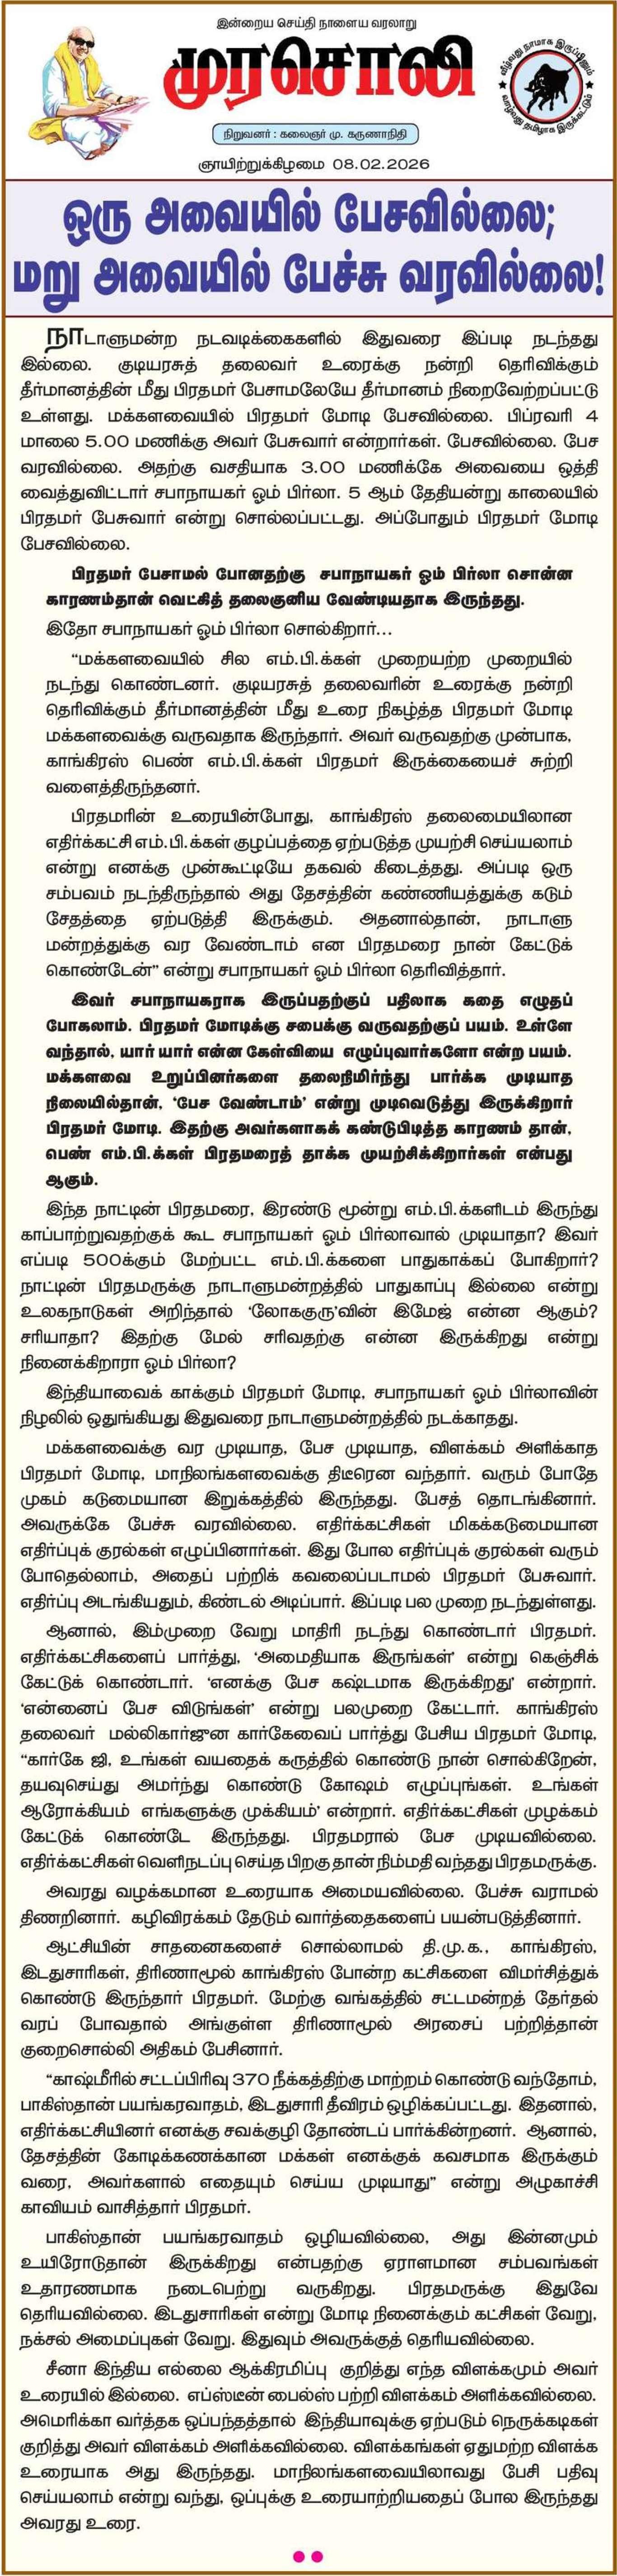 இன்றைய செய்தி நாளைய வரலாறு
முரசொலி
வீழ்வது நாமாக இருப்பினும்
வாழ்வது தமிழாக இருக்கட்டும்
நிறுவனர் : கலைஞர் மு. கருணாநிதி
ஞாயிற்றுக்கிழமை 08.02.2026
ஒரு அவையில் பேசவில்லை;
மறு அவையில் பேச்சு வரவில்லை!
நாடாளுமன்ற நடவடிக்கைகளில் இதுவரை இப்படி நடந்தது
இல்லை. குடியரசுத் தலைவர் உரைக்கு நன்றி தெரிவிக்கும்
தீர்மானத்தின் மீது பிரதமர் பேசாமலேயே தீர்மானம் நிறைவேற்றப்பட்டு
உள்ளது. மக்களவையில் பிரதமர் மோடி பேசவில்லை. பிப்ரவரி 4
மாலை 5.00 மணிக்கு அவர் பேசுவார் என்றார்கள். பேசவில்லை. பேச
வரவில்லை. அதற்கு வசதியாக 3.00 மணிக்கே அவையை ஒத்தி
வைத்துவிட்டார் சபாநாயகர் ஓம் பிர்லா. 5 ஆம் தேதியன்று காலையில்
பிரதமர் பேசுவார் என்று சொல்லப்பட்டது. அப்போதும் பிரதமர் மோடி
பேசவில்லை.
பிரதமர் பேசாமல் போனதற்கு சபாநாயகர் ஓம் பிர்லா சொன்ன
காரணம்தான் வெட்கித் தலைகுனிய வேண்டியதாக இருந்தது.
இதோ சபாநாயகர் ஓம் பிர்லா சொல்கிறார்...
“மக்களவையில் சில எம்.பி.க்கள் முறையற்ற முறையில்
நடந்து கொண்டனர். குடியரசுத் தலைவரின் உரைக்கு நன்றி
தெரிவிக்கும் தீர்மானத்தின் மீது உரை நிகழ்த்த பிரதமர் மோடி
மக்களவைக்கு வருவதாக இருந்தார். அவர் வருவதற்கு முன்பாக,
காங்கிரஸ் பெண் எம்.பி.க்கள் பிரதமர் இருக்கையைச் சுற்றி
வளைத்திருந்தனர்.
பிரதமரின் உரையின்போது, காங்கிரஸ் தலைமையிலான
எதிர்க்கட்சி எம்.பி.க்கள் குழப்பத்தை ஏற்படுத்த முயற்சி செய்யலாம்
என்று எனக்கு முன்கூட்டியே தகவல் கிடைத்தது. அப்படி ஒரு
சம்பவம் நடந்திருந்தால் அது தேசத்தின் கண்ணியத்துக்கு கடும்
சேதத்தை ஏற்படுத்தி இருக்கும். அதனால்தான், நாடாளு
மன்றத்துக்கு வர வேண்டாம் என பிரதமரை நான் கேட்டுக்
கொண்டேன்” என்று சபாநாயகர் ஓம் பிர்லா தெரிவித்தார்.
இவர் சபாநாயகராக இருப்பதற்குப் பதிலாக கதை எழுதப்
போகலாம். பிரதமர் மோடிக்கு சபைக்கு வருவதற்குப் பயம். உள்ளே
வந்தால், யார் யார் என்ன கேள்வியை எழுப்புவார்களோ என்ற பயம்.
மக்களவை உறுப்பினர்களை தலைநிமிர்ந்து பார்க்க முடியாத
நிலையில்தான், ‘பேச வேண்டாம்’ என்று முடிவெடுத்து இருக்கிறார்
பிரதமர் மோடி. இதற்கு அவர்களாகக் கண்டுபிடித்த காரணம் தான்,
பெண் எம்.பி.க்கள் பிரதமரைத் தாக்க முயற்சிக்கிறார்கள் என்பது
ஆகும்.
இந்த நாட்டின் பிரதமரை, இரண்டு மூன்று எம்.பி.க்களிடம் இருந்து
காப்பாற்றுவதற்குக் கூட சபாநாயகர் ஓம் பிர்லாவால் முடியாதா? இவர்
எப்படி 500க்கும் மேற்பட்ட எம்.பி.க்களை பாதுகாக்கப் போகிறார்?
நாட்டின் பிரதமருக்கு நாடாளுமன்றத்தில் பாதுகாப்பு இல்லை என்று
உலகநாடுகள் அறிந்தால் ‘லோககுரு’வின் இமேஜ் என்ன ஆகும்?
சரியாதா? இதற்கு மேல் சரிவதற்கு என்ன இருக்கிறது என்று
நினைக்கிறாரா ஓம் பிர்லா?
இந்தியாவைக் காக்கும் பிரதமர் மோடி, சபாநாயகர் ஓம் பிர்லாவின்
நிழலில் ஒதுங்கியது இதுவரை நாடாளுமன்றத்தில் நடக்காதது.
மக்களவைக்கு வர முடியாத, பேச முடியாத, விளக்கம் அளிக்காத
பிரதமர் மோடி, மாநிலங்களவைக்கு திடீரென வந்தார். வரும் போதே
முகம் கடுமையான இறுக்கத்தில் இருந்தது. பேசத் தொடங்கினார்.
அவருக்கே பேச்சு வரவில்லை. எதிர்க்கட்சிகள் மிகக்கடுமையான
எதிர்ப்புக் குரல்கள் எழுப்பினார்கள். இது போல எதிர்ப்புக் குரல்கள் வரும்
போதெல்லாம், அதைப் பற்றிக் கவலைப்படாமல் பிரதமர் பேசுவார்.
எதிர்ப்பு அடங்கியதும், கிண்டல் அடிப்பார். இப்படி பல முறை நடந்துள்ளது.
ஆனால், இம்முறை வேறு மாதிரி நடந்து கொண்டார் பிரதமர்.
எதிர்க்கட்சிகளைப் பார்த்து, ‘அமைதியாக இருங்கள்’ என்று கெஞ்சிக்
கேட்டுக் கொண்டார். ‘எனக்கு பேச கஷ்டமாக இருக்கிறது’ என்றார்.
‘என்னைப் பேச விடுங்கள்’ என்று பலமுறை கேட்டார். காங்கிரஸ்
தலைவர் மல்லிகார்ஜுன கார்கேவைப் பார்த்து பேசிய பிரதமர் மோடி,
“கார்கே ஜி, உங்கள் வயதைக் கருத்தில் கொண்டு நான் சொல்கிறேன்,
தயவுசெய்து அமர்ந்து கொண்டு கோஷம் எழுப்புங்கள். உங்கள்
ஆரோக்கியம் எங்களுக்கு முக்கியம்’ என்றார். எதிர்க்கட்சிகள் முழக்கம்
கேட்டுக் கொண்டே இருந்தது. பிரதமரால் பேச முடியவில்லை.
எதிர்க்கட்சிகள் வெளிநடப்பு செய்த பிறகு தான் நிம்மதி வந்தது பிரதமருக்கு.
அவரது வழக்கமான உரையாக அமையவில்லை. பேச்சு வராமல்
திணறினார். கழிவிரக்கம் தேடும் வார்த்தைகளைப் பயன்படுத்தினார்.
ஆட்சியின் சாதனைகளைச் சொல்லாமல் தி.மு.க., காங்கிரஸ்,
இடதுசாரிகள், திரிணாமூல் காங்கிரஸ் போன்ற கட்சிகளை விமர்சித்துக்
கொண்டு இருந்தார் பிரதமர். மேற்கு வங்கத்தில் சட்டமன்றத் தேர்தல்
வரப் போவதால் அங்குள்ள திரிணாமூல் அரசைப் பற்றித்தான்
குறைசொல்லி அதிகம் பேசினார்.
“காஷ்மீரில் சட்டப்பிரிவு 370 நீக்கத்திற்கு மாற்றம் கொண்டு வந்தோம்,
பாகிஸ்தான் பயங்கரவாதம், இடதுசாரி தீவிரம் ஒழிக்கப்பட்டது. இதனால்,
எதிர்க்கட்சியினர் எனக்கு சவக்குழி தோண்டப் பார்க்கின்றனர். ஆனால்,
தேசத்தின் கோடிக்கணக்கான மக்கள் எனக்குக் கவசமாக இருக்கும்
வரை, அவர்களால் எதையும் செய்ய முடியாது” என்று அழுகாச்சி
காவியம் வாசித்தார் பிரதமர்.
பாகிஸ்தான் பயங்கரவாதம் ஒழியவில்லை, அது இன்னமும்
உயிரோடுதான் இருக்கிறது என்பதற்கு ஏராளமான சம்பவங்கள்
உதாரணமாக நடைபெற்று வருகிறது. பிரதமருக்கு இதுவே
தெரியவில்லை. இடதுசாரிகள் என்று மோடி நினைக்கும் கட்சிகள் வேறு,
நக்சல் அமைப்புகள் வேறு. இதுவும் அவருக்குத் தெரியவில்லை.
சீனா இந்திய எல்லை ஆக்கிரமிப்பு குறித்து எந்த விளக்கமும் அவர்
உரையில் இல்லை. எப்ஸ்டீன் பைல்ஸ் பற்றி விளக்கம் அளிக்கவில்லை.
அமெரிக்கா வர்த்தக ஒப்பந்தத்தால் இந்தியாவுக்கு ஏற்படும் நெருக்கடிகள்
குறித்து அவர் விளக்கம் அளிக்கவில்லை. விளக்கங்கள் ஏதுமற்ற விளக்க
உரையாக அது இருந்தது. மாநிலங்களவையிலாவது பேசி பதிவு
செய்யலாம் என்று வந்து, ஒப்புக்கு உரையாற்றியதைப் போல இருந்தது
அவரது உரை.